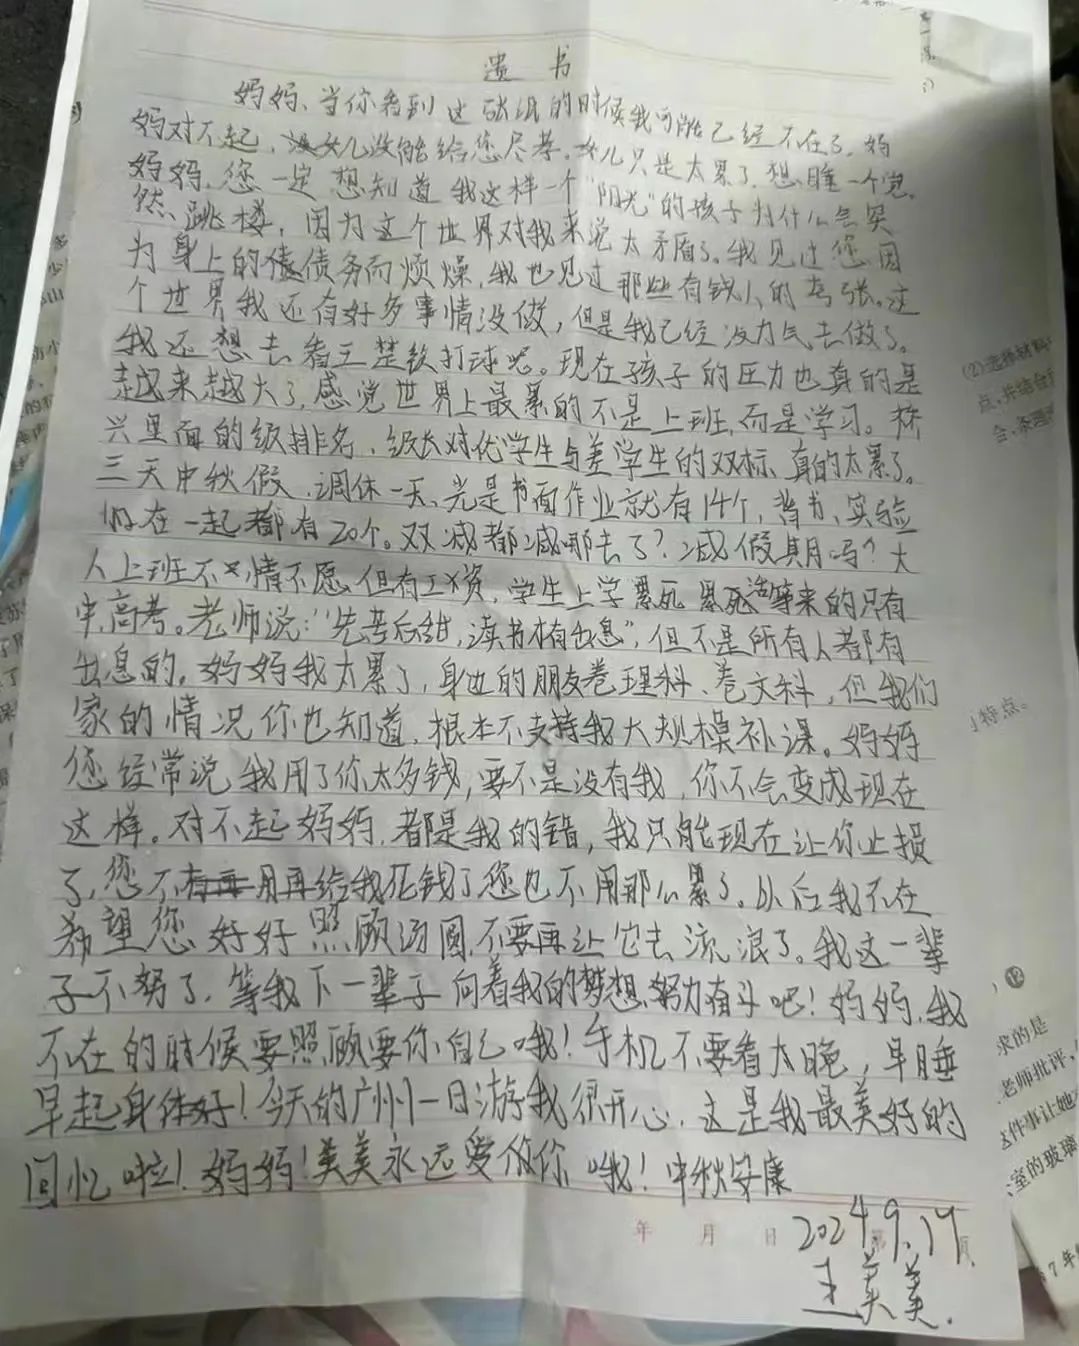 遗书
妈妈、当你看到这张纸的时候我可能已经不在了,妈
妈对不起,女儿没能给您尽孝,女儿只是太累了,想睡一个觉
妈妈,您一定想知道我这样一个"阳光"的孩子为什么会突
然跳楼,因为这个世界对我来说太矛盾了。我见过您因
为身上的债务而烦燥,我也见过那些有钱人的夸张。这
个世界我还有好多事情没做,但是我已经没力气去做了。
我还想去看王楚钦打球呢。现在孩子的压力也真的是
越来越大了,感觉世界上最累的不是上班,而是学习。
兴里面的级排名、级长对优学生与差学生的双标、真的太累了。
三天中秋假,调休一天、光是书面作业就有14个,背书、实验
加在一起都有20个。双减都减哪去了?减假期吗?大
人上班不情不愿,但有工资,学生上学累死累死活等来的只有
中,高考。老师说:"先苦后甜,读书才有出息",但不是所有人都有
出息的。妈妈我太累了,身边的朋友卷理科、卷文科,但我们
家的情况你也知道,根本不支持我大规模补课。妈妈
您经常说我用了你太多钱,要不是没有我,你不会变成现在
这样。对不起妈妈,都是我的错,我只能现在让你止损
了,您不用再给我花钱了您也不用那么累了。以后我不在
希望您好好照顾汤圆,不要再让它去流浪了。我这一辈
子不努了,等我下一辈子向着我的梦想努力奋斗吧!妈妈,我
不在的时候要照顾要你自己哦!手机不要看太晚,早睡
早起身体好!今天的广州一日游我很开心,这是我最美好的
回忆啦!妈妈!美美永远爱你哦!中秋安康
年 月 日 2024.9.17
王美美.
(2)选择材料
点,并结合
特点。
求的是
老师批评,
这件事让她
室的玻璃